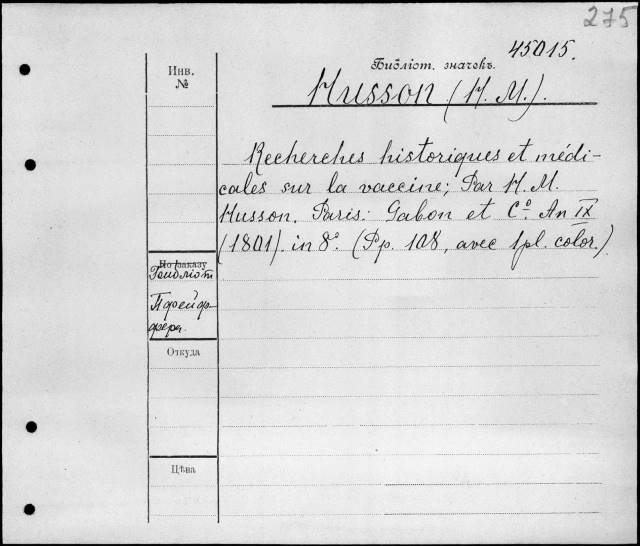 275
45015.
Библіот. значекъ.
Инв.
№
Husson (H. M.).
Recherches historiques et médi-
cales sur la vaccine; Par H. M.
Husson. Paris: Gabon et Cº. An IX
(1801). in 8º. (Pp. 108, avec 1 pl. color.)
По заказу
Библіот
Пфейф-
фера.
Откуда
Цѣна